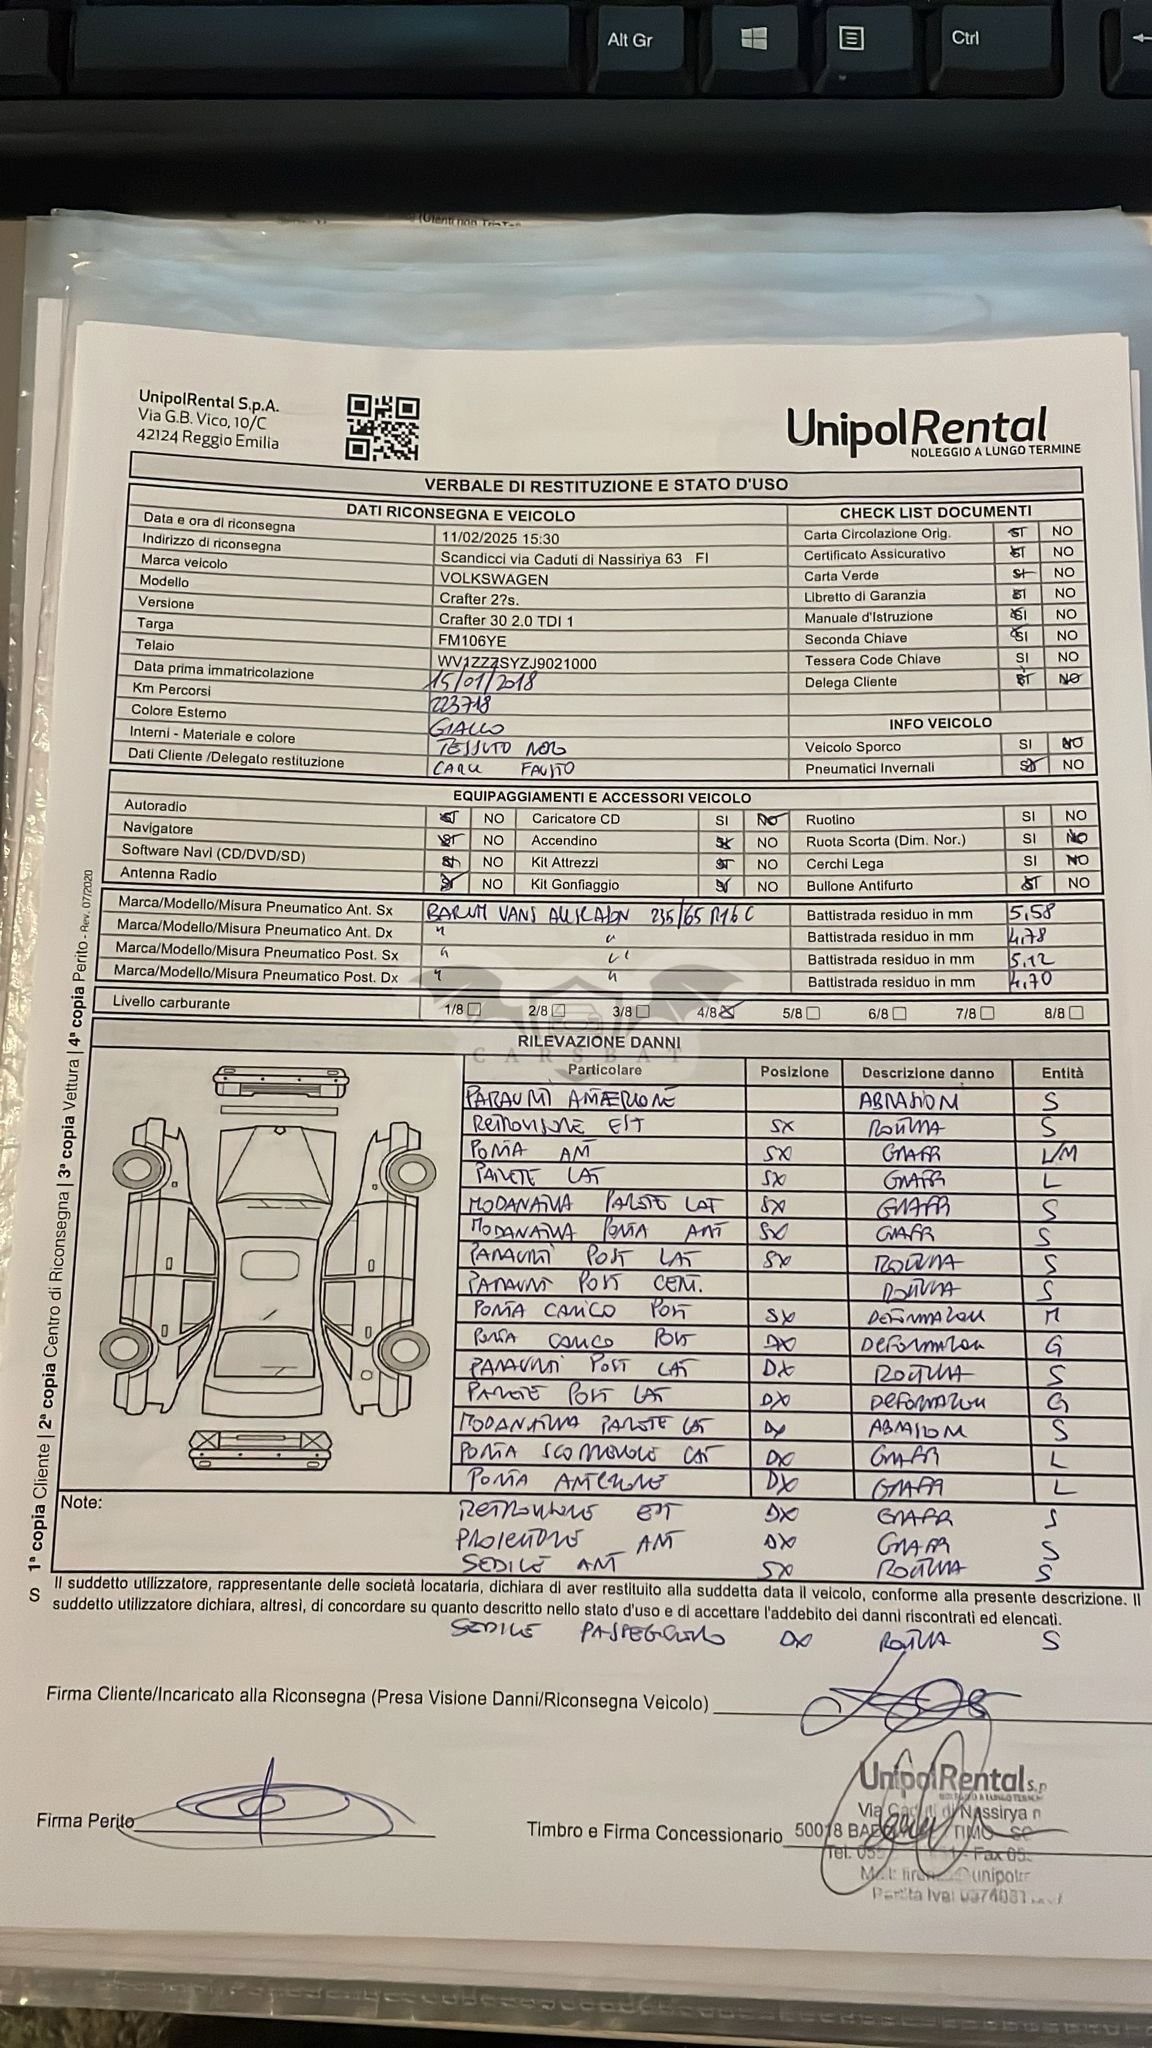 Alt Gr
Ctrl
UnipolRental S.p.A.
Via G.B. Vico, 10/C
42124 Reggio Emilia
UnipolRental
NOLEGGIO A LUNGO TERMINE
VERBALE DI RESTITUZIONE E STATO D'USO
DATI RICONSEGNA E VEICOLO
Data e ora di riconsegna 11/02/2025 15:30
Indirizzo di riconsegna Scandicci via Caduti di Nassiriya 63 FI
Marca veicolo VOLKSWAGEN
Modello Crafter 2?s.
Versione Crafter 30 2.0 TDI 1
Targa FM106YE
Telaio WV1ZZZSYZJ9021000
Data prima immatricolazione 15/01/2018
Km Percorsi 223718
Colore Esterno GIALLO
Interni - Materiale e colore TESSUTO NERO
Dati Cliente /Delegato restituzione FAUSTO
CHECK LIST DOCUMENTI
Carta Circolazione Orig. SI NO
Certificato Assicurativo SI NO
Carta Verde SI NO
Libretto di Garanzia SI NO
Manuale d'Istruzione SI NO
Seconda Chiave SI NO
Tessera Code Chiave SI NO
Delega Cliente SI NO
INFO VEICOLO
Veicolo Sporco SI NO
Pneumatici Invernali SI NO
EQUIPAGGIAMENTI E ACCESSORI VEICOLO
Autoradio SI NO Caricatore CD SI NO Ruotino SI NO
Navigatore SI NO Accendino SI NO Ruota Scorta (Dim. Nor.) SI NO
Software Navi (CD/DVD/SD) SI NO Kit Attrezzi SI NO Cerchi Lega SI NO
Antenna Radio SI NO Kit Gonfiaggio SI NO Bullone Antifurto SI NO
Marca/Modello/Misura Pneumatico Ant. Sx BARUM VANS 235/65 R16 C Battistrada residuo in mm 5,58
Marca/Modello/Misura Pneumatico Ant. Dx " " Battistrada residuo in mm 4,78
Marca/Modello/Misura Pneumatico Post. Sx " " Battistrada residuo in mm 5,12
Marca/Modello/Misura Pneumatico Post. Dx " " Battistrada residuo in mm 4,70
Livello carburante 1/8 2/8 3/8 4/8 5/8 6/8 7/8 8/8
CARSBAT
RILEVAZIONE DANNI
Particolare Posizione Descrizione danno Entità
PARAURTI ANTERIORE ABRASIONI S
RETROVISORE EST SX ROTTURA S
PORTA ANT SX GRAFFI L/M
PARETE LAT SX GRAFFI L
MODANATURA PARETE LAT SX GRAFFI S
MODANATURA PORTA ANT SX GRAFFI S
PARAURTI POST LAT SX ROTTURA S
PARAURTI POST CENT. ROTTURA S
PORTA CARICO POST SX DEFORMAZIONI M
PORTA CARICO POST DX DEFORMAZIONI G
PARAURTI POST LAT DX ROTTURA S
PARETE POST LAT DX DEFORMAZIONI G
MODANATURA PARETE LAT DX ABRASIONI S
PORTA SCORREVOLE LAT DX GRAFFI L
PORTA ANTERIORE DX GRAFFI L
Note: RETROVISORE EST DX GRAFFI S
PROIETTORE ANT DX GRAFFI S
SEDILE ANT SX ROTTURA S
Il suddetto utilizzatore, rappresentante delle società locataria, dichiara di aver restituito alla suddetta data il veicolo, conforme alla presente descrizione. Il
S suddetto utilizzatore dichiara, altresì, di concordare su quanto descritto nello stato d'uso e di accettare l'addebito dei danni riscontrati ed elencati.
SEDILE PASSEGGERO DX ROTTURA S
Firma Cliente/Incaricato alla Riconsegna (Presa Visione Danni/Riconsegna Veicolo)
Firma Perito
Timbro e Firma Concessionario
UnipolRental S.p
Via Caduti di Nassirya n
50018
Tel. - Fax
Partita Iva:
1ª copia Cliente | 2ª copia Centro di Riconsegna | 3ª copia Vettura | 4ª copia Perito - Rev. 07/2020